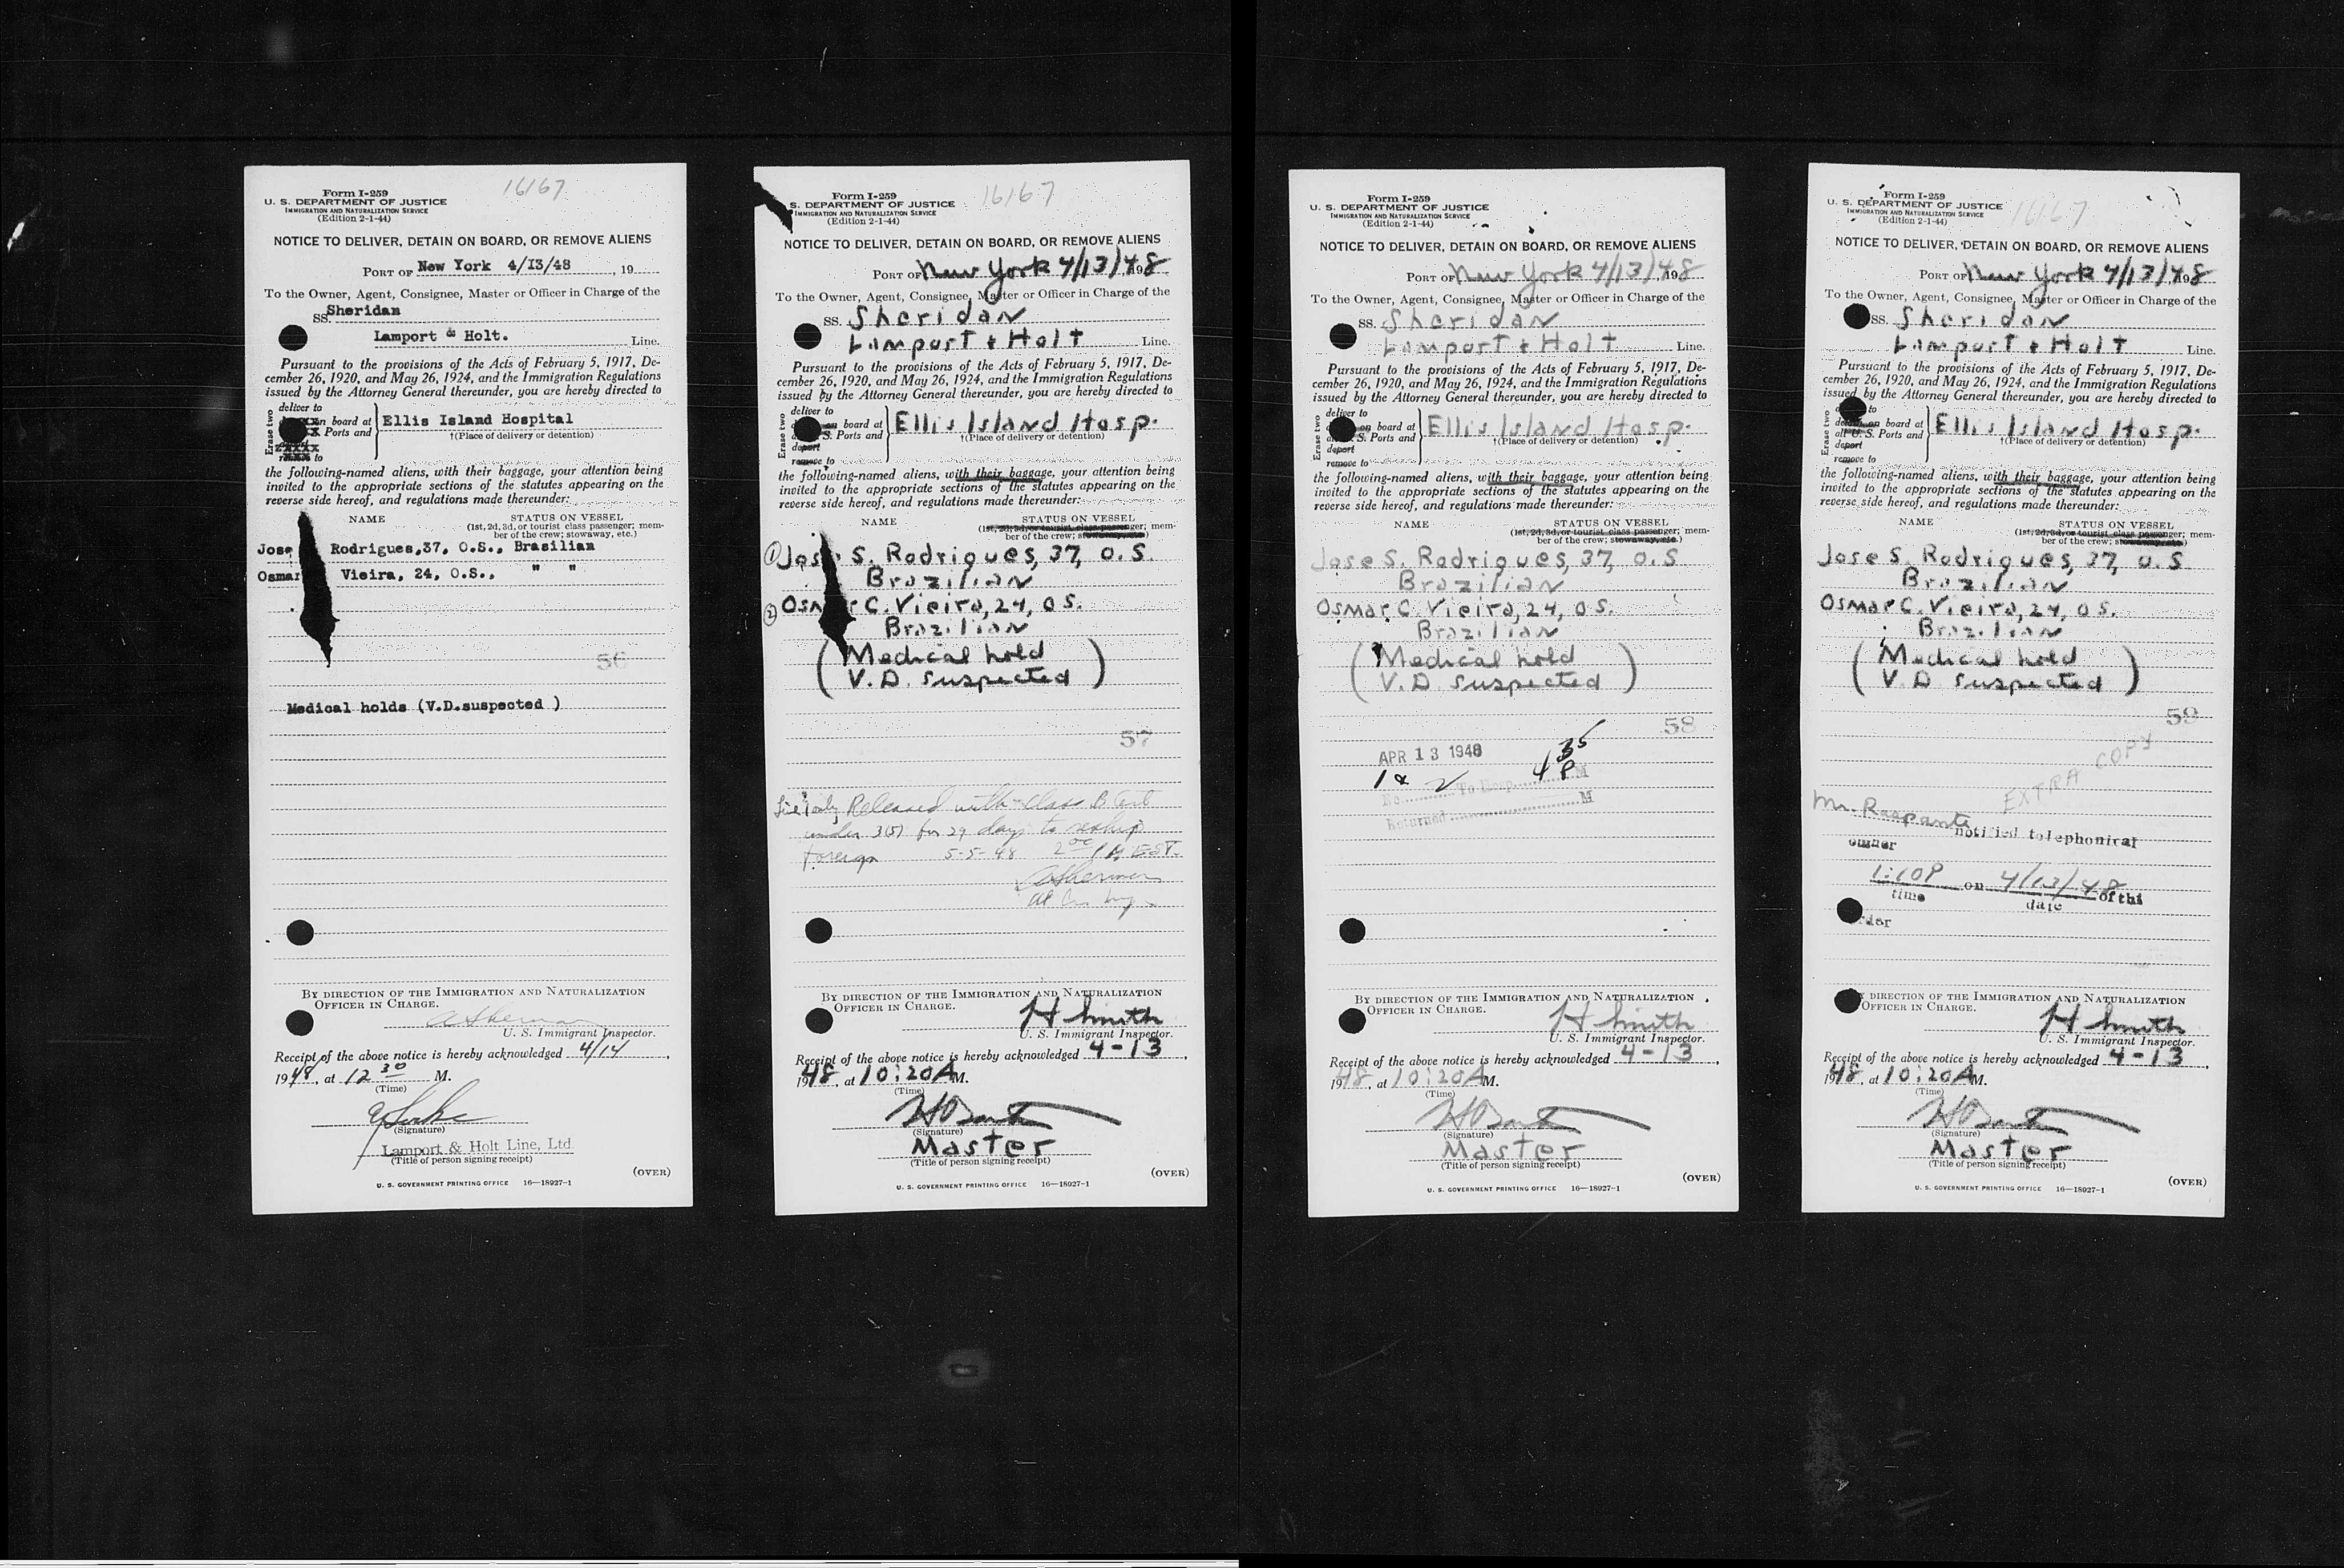 Form I-259
16167
U. S. DEPARTMENT OF JUSTICE
IMMIGRATION AND NATURALIZATION SERVICE
(Edition 2-1-44)
NOTICE TO DELIVER, DETAIN ON BOARD, OR REMOVE ALIENS
PORT OF New York 4/13/48, 19
To the Owner, Agent, Consignee, Master or Officer in Charge of the
SS. Sheridan
Lamport & Holt. Line.
Pursuant to the provisions of the Acts of February 5, 1917, De-
cember 26, 1920, and May 26, 1924, and the Immigration Regulations
issued by the Attorney General thereunder, you are hereby directed to
Erase two
deliver to
on board at Ellis Island Hospital
Ports and †(Place of delivery or detention)
remove to
the following-named aliens, with their baggage, your attention being
invited to the appropriate sections of the statutes appearing on the
reverse side hereof, and regulations made thereunder:
NAME STATUS ON VESSEL
(1st, 2d, 3d, or tourist class passenger; mem-
ber of the crew; stowaway, etc.)
Jose Rodrigues,37, O.S., Brasilian
Osmar Vieira, 24, O.S., " "
56
Medical holds (V.D.suspected )
BY DIRECTION OF THE IMMIGRATION AND NATURALIZATION
OFFICER IN CHARGE.
A Sherman
U. S. Immigrant Inspector.
Receipt of the above notice is hereby acknowledged 4/14,
1948, at 12 30 M.
(Time)
(Signature)
Lamport & Holt Line, Ltd
(Title of person signing receipt)
(OVER)
U. S. GOVERNMENT PRINTING OFFICE 16—18927-1
Form I-259
16167
S. DEPARTMENT OF JUSTICE
IMMIGRATION AND NATURALIZATION SERVICE
(Edition 2-1-44)
NOTICE TO DELIVER, DETAIN ON BOARD, OR REMOVE ALIENS
PORT OF New York 4/13/, 1948
To the Owner, Agent, Consignee, Master or Officer in Charge of the
SS. Sheridan
Lamport & Holt Line.
Pursuant to the provisions of the Acts of February 5, 1917, De-
cember 26, 1920, and May 26, 1924, and the Immigration Regulations
issued by the Attorney General thereunder, you are hereby directed to
Erase two
deliver to
on board at Ellis Island Hosp.
S. Ports and †(Place of delivery or detention)
deport
remove to
the following-named aliens, with their baggage, your attention being
invited to the appropriate sections of the statutes appearing on the
reverse side hereof, and regulations made thereunder:
NAME STATUS ON VESSEL
(1st, 2d, 3d, or tourist class passenger; mem-
ber of the crew; stowaway, etc.)
① Jose S. Rodrigues, 37, O.S.
Brazilian
② Osmar C. Vieira, 24, O S.
Brazilian
(Medical hold
V. D. suspected)
57
Released with class B Cert
under 3(5) for 29 days to reship
foreign 5-5-48 2 00 PM EST.
A Sherman
BY DIRECTION OF THE IMMIGRATION AND NATURALIZATION
OFFICER IN CHARGE.
H Smith
U. S. Immigrant Inspector.
Receipt of the above notice is hereby acknowledged 4-13,
1948, at 10:20 A M.
(Time)
(Signature)
Master
(Title of person signing receipt)
(OVER)
U. S. GOVERNMENT PRINTING OFFICE 16—18927-1
Form I-259
U. S. DEPARTMENT OF JUSTICE
IMMIGRATION AND NATURALIZATION SERVICE
(Edition 2-1-44)
NOTICE TO DELIVER, DETAIN ON BOARD, OR REMOVE ALIENS
PORT OF New York 4/13/, 1948
To the Owner, Agent, Consignee, Master or Officer in Charge of the
SS. Sheridan
Lamport & Holt Line.
Pursuant to the provisions of the Acts of February 5, 1917, De-
cember 26, 1920, and May 26, 1924, and the Immigration Regulations
issued by the Attorney General thereunder, you are hereby directed to
Erase two
deliver to
on board at Ellis Island Hosp.
S. Ports and †(Place of delivery or detention)
deport
remove to
the following-named aliens, with their baggage, your attention being
invited to the appropriate sections of the statutes appearing on the
reverse side hereof, and regulations made thereunder:
NAME STATUS ON VESSEL
(1st, 2d, 3d, or tourist class passenger; mem-
ber of the crew; stowaway, etc.)
Jose S. Rodrigues, 37, O.S
Brazilian
Osmar C. Vieira, 24, O S.
Brazilian
(Medical hold
V. D. suspected)
58
APR 13 1948 4 35
1 & 2 P M
No. To Hosp.
Returned M
BY DIRECTION OF THE IMMIGRATION AND NATURALIZATION
OFFICER IN CHARGE.
H Smith
U. S. Immigrant Inspector.
Receipt of the above notice is hereby acknowledged 4-13,
1948, at 10:20 A M.
(Time)
(Signature)
Master
(Title of person signing receipt)
(OVER)
U. S. GOVERNMENT PRINTING OFFICE 16—18927-1
Form I-259
16167
U. S. DEPARTMENT OF JUSTICE
IMMIGRATION AND NATURALIZATION SERVICE
(Edition 2-1-44)
NOTICE TO DELIVER, DETAIN ON BOARD, OR REMOVE ALIENS
PORT OF New York 4/13/, 1948
To the Owner, Agent, Consignee, Master or Officer in Charge of the
SS. Sheridan
Lamport & Holt Line.
Pursuant to the provisions of the Acts of February 5, 1917, De-
cember 26, 1920, and May 26, 1924, and the Immigration Regulations
issued by the Attorney General thereunder, you are hereby directed to
Erase two
to
on board at Ellis Island Hosp.
all U. S. Ports and †(Place of delivery or detention)
deport
remove to
the following-named aliens, with their baggage, your attention being
invited to the appropriate sections of the statutes appearing on the
reverse side hereof, and regulations made thereunder:
NAME STATUS ON VESSEL
(1st, 2d, 3d, or tourist class passenger; mem-
ber of the crew; stowaway, etc.)
Jose S. Rodrigues, 37, O.S
Brazilian
Osmar C. Vieira, 24, O S.
Brazilian
(Medical hold
V. D suspected)
59
EXTRA COPY
Mr. notified telephonical
owner
1:10P on 4/13/48 of thi
time date
rder
DIRECTION OF THE IMMIGRATION AND NATURALIZATION
OFFICER IN CHARGE.
H Smith
U. S. Immigrant Inspector.
Receipt of the above notice is hereby acknowledged 4-13,
1948, at 10:20 A M.
(Time)
(Signature)
Master
(Title of person signing receipt)
(OVER)
U. S. GOVERNMENT PRINTING OFFICE 16—18927-1